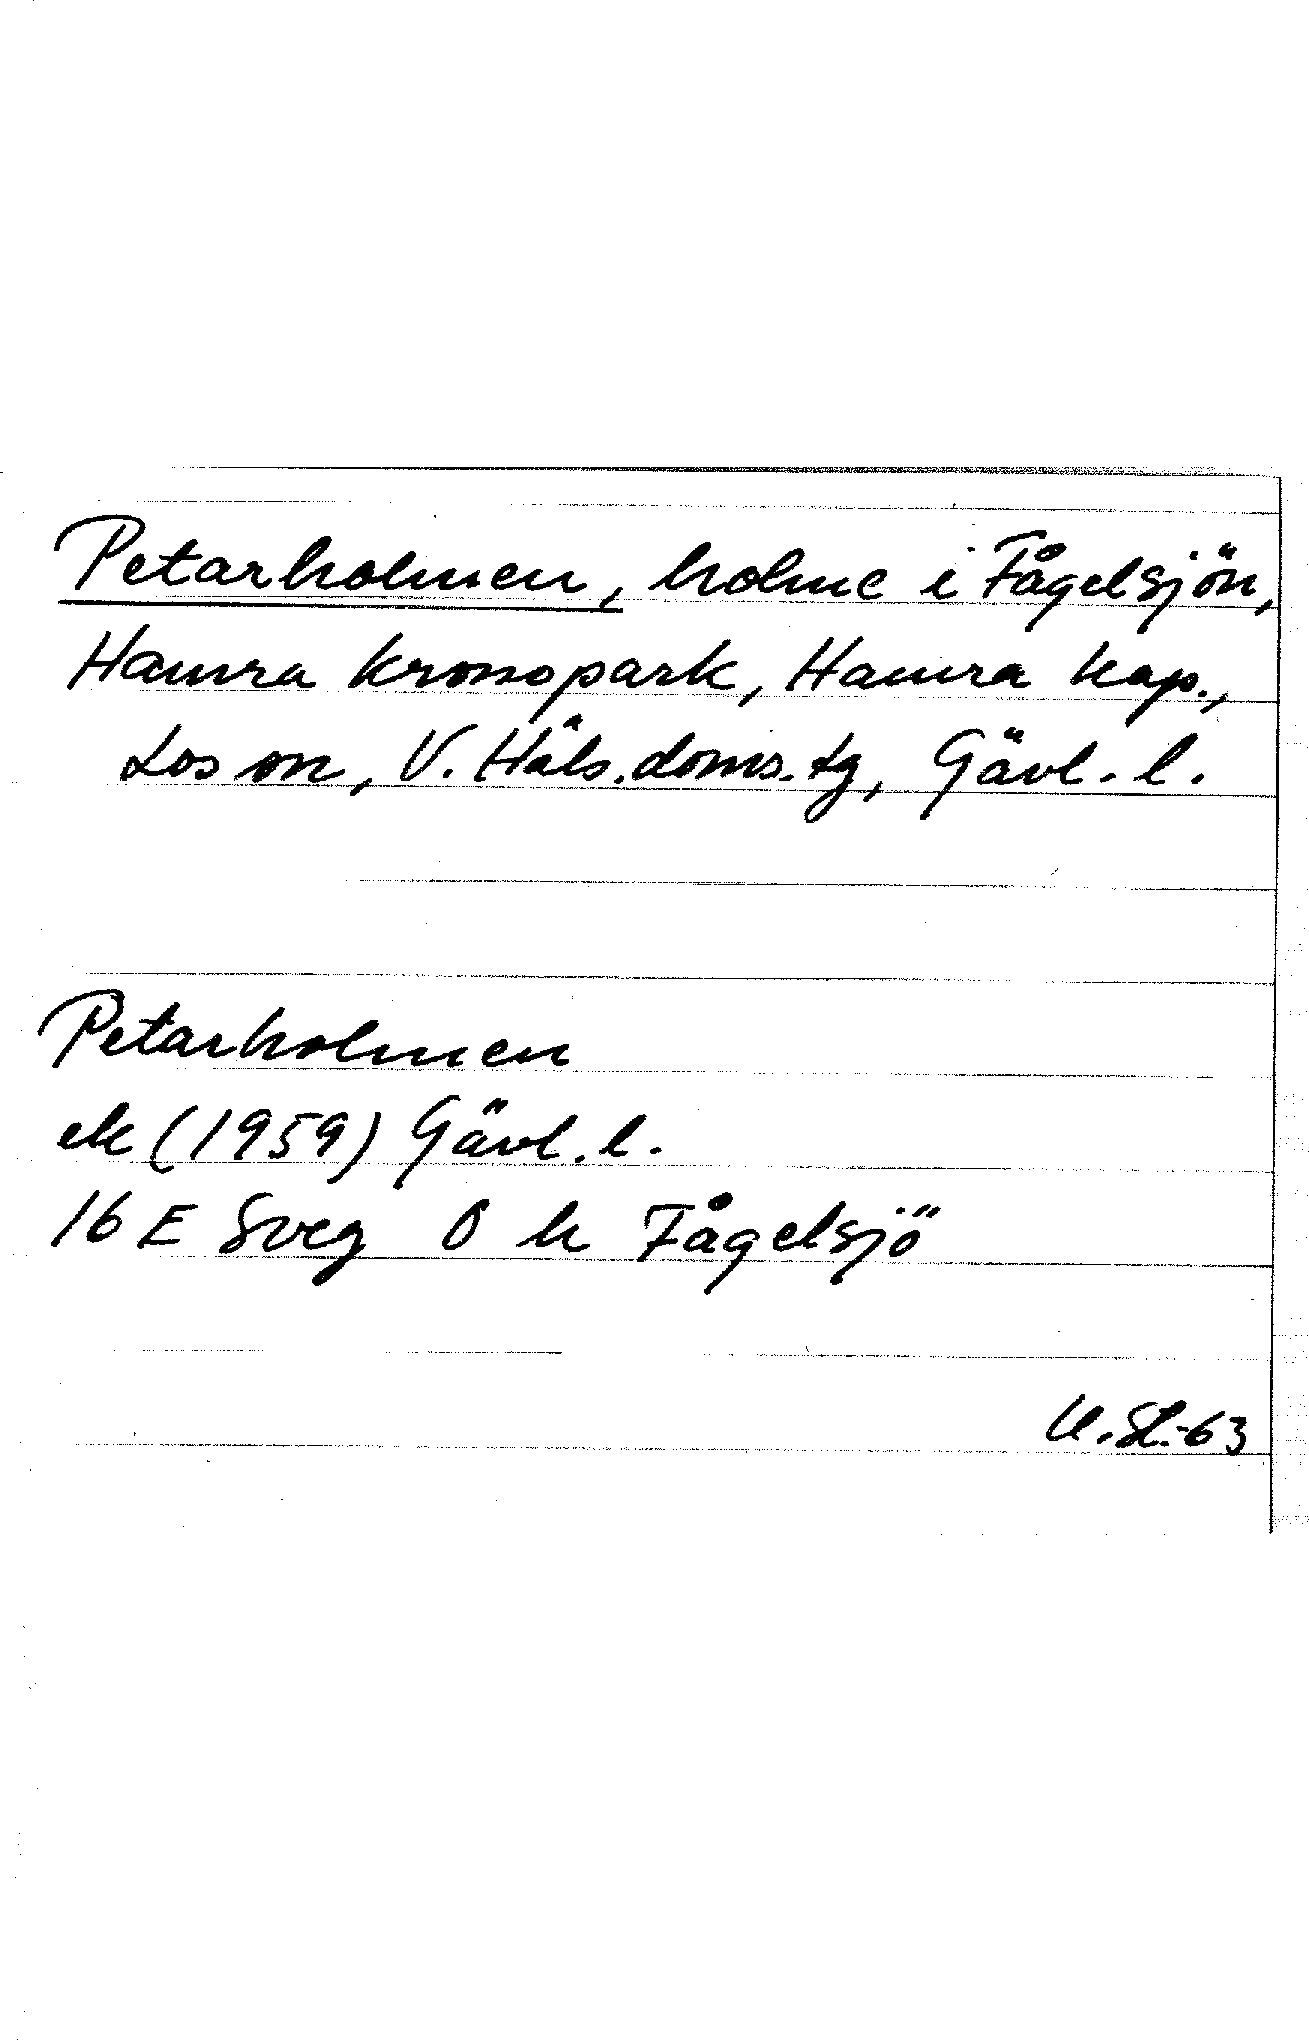 Petarholmen, holme i Fågelsjön,
Hamra kronopark, Hamra kap.,
Los sn, V. Häls. doms. tg, Gävl. l.
Petarholmen
ek (1959) Gävl. l.
16 E Sveg 0 h Fågelsjö
U. St.-63